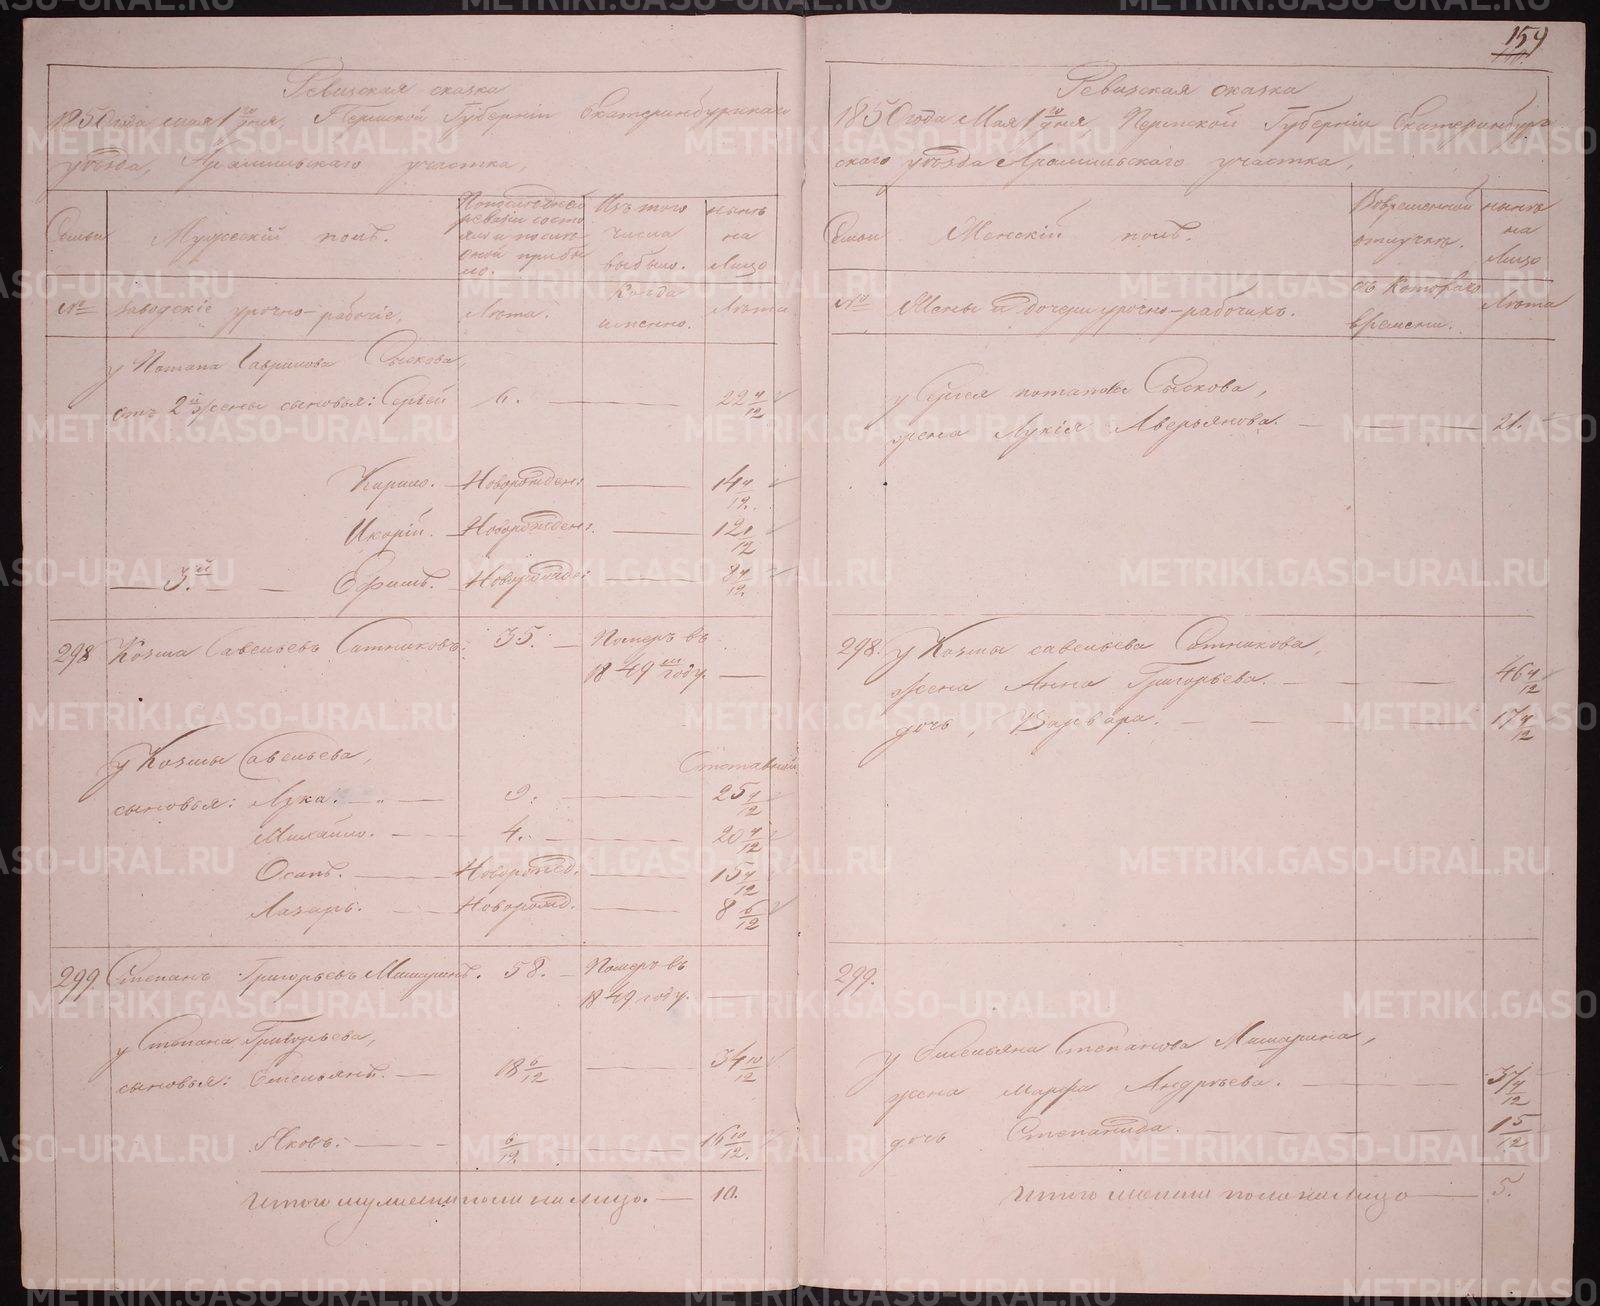 159
Ревизская сказка
1850 года мая 1го дня, Пермской Губернии Екатеринбургскаго
уезда, Арамильскаго участка,
Семьи
Мужескій полъ.
По последней
ревизіи состо
яло и после
оной прибы
ло.
Изъ того
числа
выбыло.
ныне
на
лицо
№
Заводскіе урочно-рабочіе.
Лета.
Когда
именно.
Лета
у Потапа Гаврилова Сыскова,
отъ 2й жены сыновья: Сергей 6. 22 4/12
Кирило. Новорожден: 14 4/12.
Новорожден: 12 1/12
3ей Ефимъ. Новорожде: 8 4/12.
298 Козма Савельевъ Ситниковъ: 35. Померъ въ
1849м году.
у Козмы Савельева,
Отставной
сыновья: Лука. 9. 25 4/12
Михайло. 4. 20 4/12
Осипъ. Новорожд. 15 4/12
Лазарь. Новорожд. 8 6/12
299 Степанъ Григорьевъ Мишаринъ. 58. Померъ въ
1849 году.
у Степана Григорьева,
сыновья: Емельянъ. 18 6/12 34 10/12
Яковъ. 6/12. 16 10/12.
Итого мужеска пола на лицо. 10.
Ревизская сказка
1850 года Мая 1го дня, Пермской Губерніи Екатеринбург
скаго уезда Арамильскаго участка,
Семьи
Женскій полъ.
Во временной
отлучке.
ныне
на
лицо
№
Жены и дочери урочно-рабочихъ.
съ котораго
времени.
Лета
у Сергея потапова Сыскова,
жена Лукія Аверьянова. 21.
298. у Козмы савельева Ситникова,
жена Анна Григорьева. 46 4/12
дочь, Варвара. 17 4/12
299.
у Емельяна Степанова Мишарина,
жена марфа Андреева. 37 4/12
дочь Степанида. 15/12
Итого женска пола на лицо 5.
METRIKI.GASO-URAL.RU